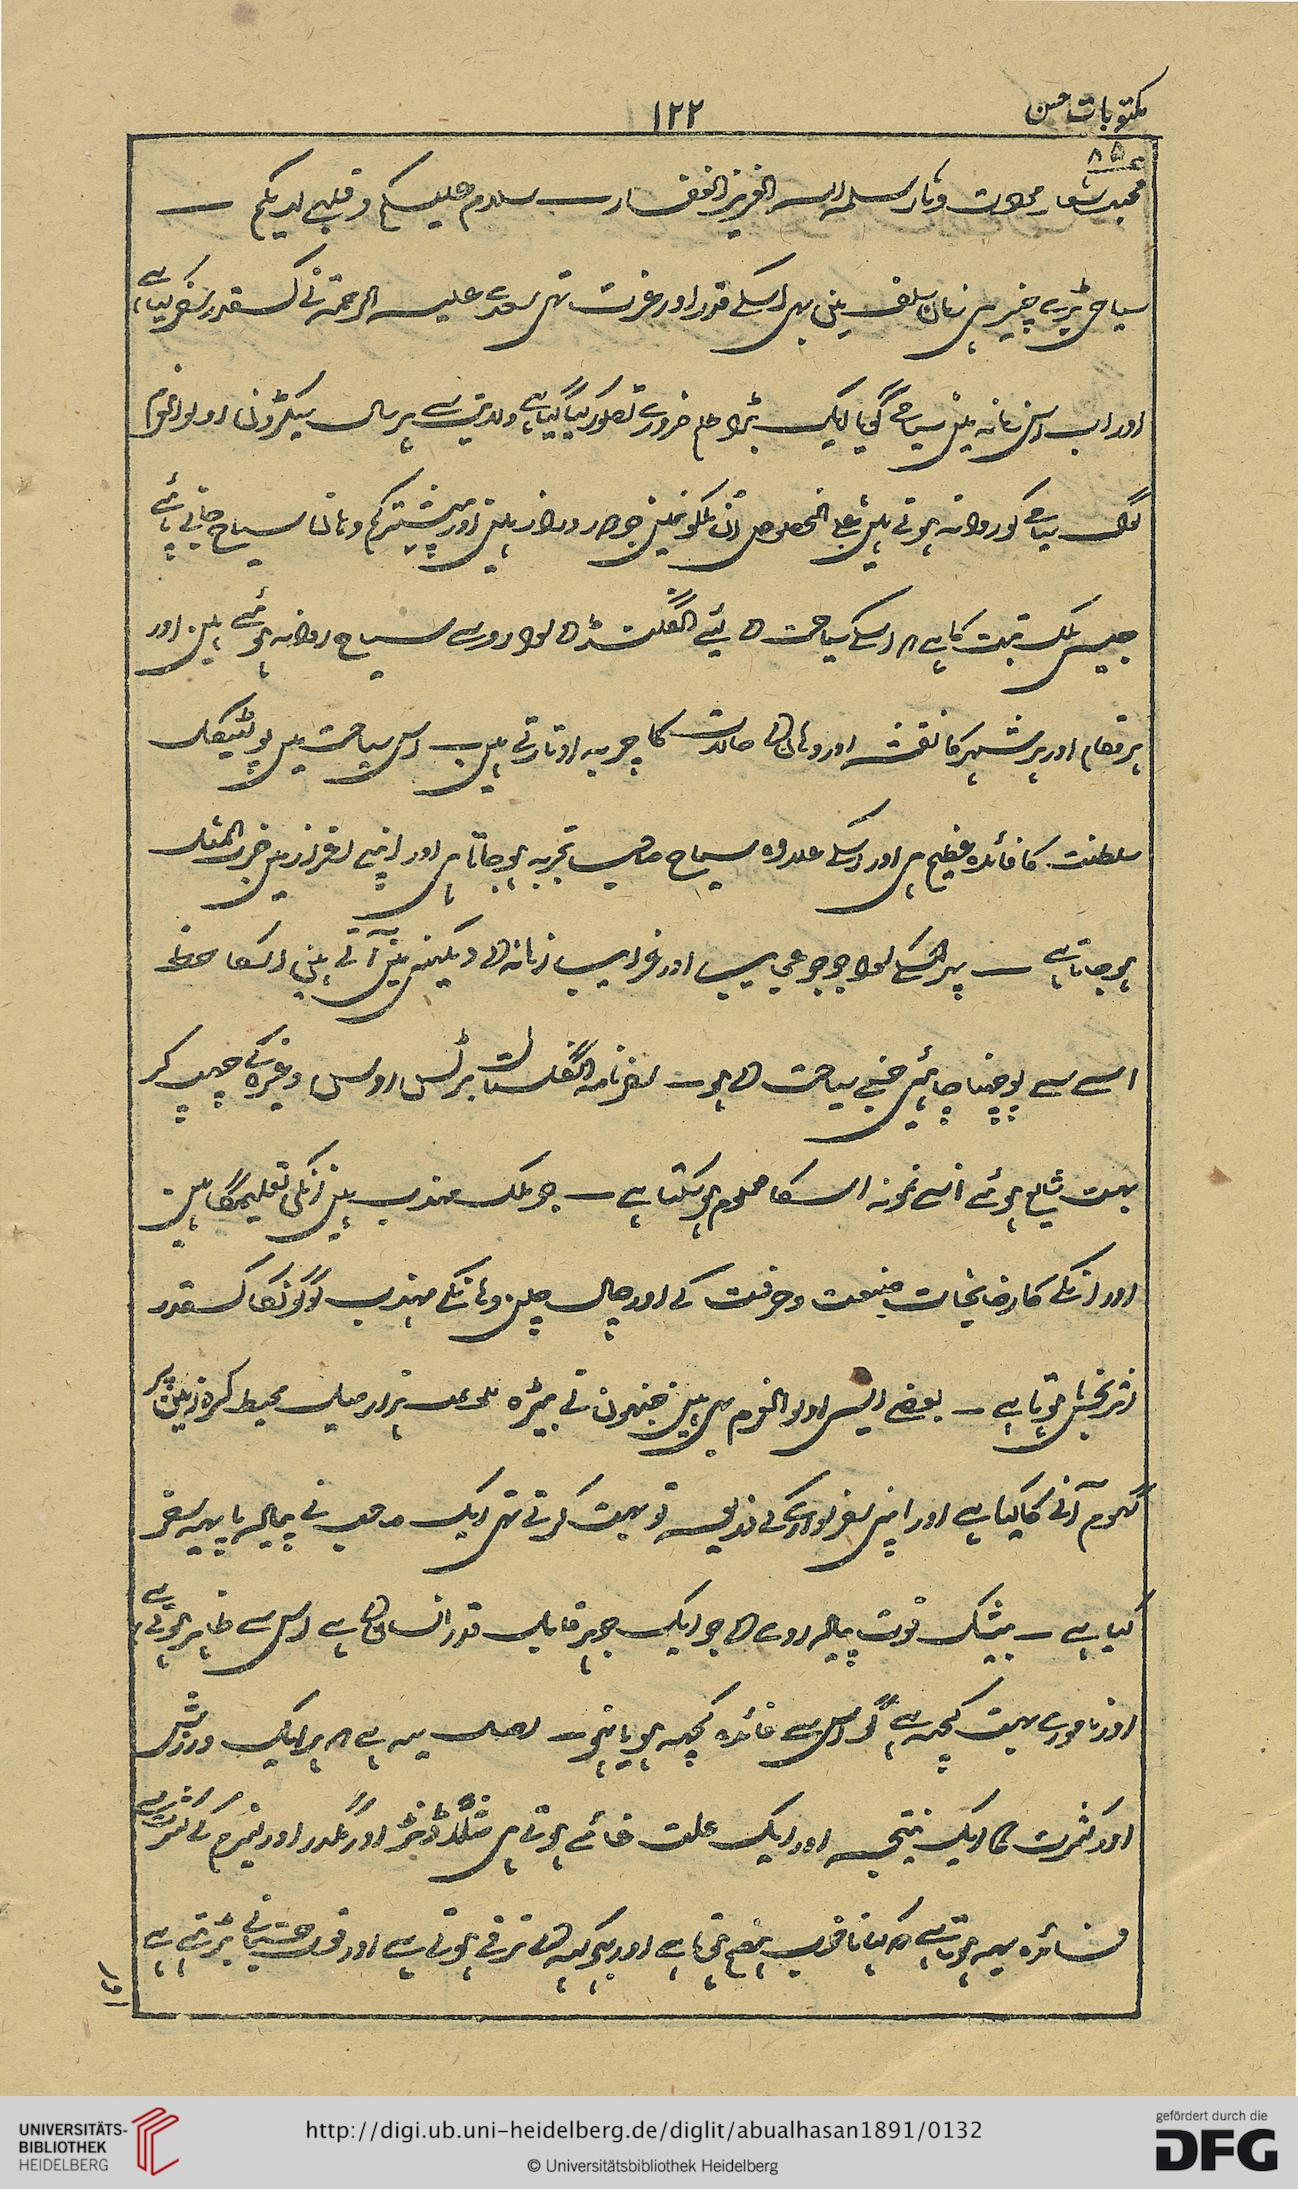 مکتوبات حسن
۱۲۲
۸۵
محبت شعار مودت وثار سلمہ اللہ العزیز الغفار سلام علیکم و قلبی لدیکم
سیاحی بڑے چیز ہی زمان سلف مین بہی اسکے قدر اور عزت تہی سعدے علیہ الرحمۃ نے کسقدر سفر کیا ہے
اور اب اس زمانہ مین سیاحے گویا ایک بڑا علم ضرورے تصور کیا گیا ہے ولایت سے ہر سال سیکڑون اولوالعزم
لوگ سیاحے کو روانہ ہوتے ہین علی الخصوص ان ملکونمین جو دور دراز ہین اور پیشتر کم وہانتا سیاح جانے پائے
جیس ملک تبت کا ہے کہ اسکے سیاحت کے لئے انگلنڈ کے اور روس سے سیاح روانہ ہوئے ہین اور
ہر مقام اور ہر شہر کا نقشہ اور وہان کے حالات کا چربہ اوتارتے ہین اس سیاحت مین پولٹیکل
سلطنت کا فائدہ عظیم ہی اور اسکے علاوہ سیاح صاحب تجربہ ہو جاتا ہی اور اپنے اقران مین ضرب المثل
ہو جاتا ہے پہر اسکے سوا جو جو عجایب اور غرایب زمانہ کے دیکھنے مین آتے ہین اسکا حظ
اسے سے پوچہنا چاہئی جسنے سیاحت کے ہو سفرنامہ انگلستان برٹس روس وغیرہ کے چہپ کر
بہت شایع ہوئے انسے نمونہ اسکا معلوم ہو سکتا ہے جو ملک مہذب ہین انکی تعلیمگاہین
اور انکے کارخانجات صنعت و حرفت کے اور چال چلن وہانکے مہذب لوگونکا کسقدر
اثر بخش ہوتا ہے بعضے ایسی اولوالعزم بہی ہین جنہون نے بیڑہ ہزار میل محیط کرہ زمین پر
گہوم آنے کا کیا ہے اور اپنی سفر سوارے کے ذریعہ تو بہت کرتے تہی ایک صاحب نے پیالہ پا یہہ سفر
کیا ہے بیشک قوت پیالہ روے کے جو ایک جوہر قابل قدر انسان کا ہے اس سے ظاہر ہوتی ہے
اور نامورے بہت کچہہ ہے گو اس سے فائدہ کچہہ ہو یا نہو اصل یہہ ہے کہ ہر ایک ورزش
اور کثرت کا ایک نتیجہ اور ایک علت غائے ہوتے ہی مثلاً ڈنڑ اور مگدر اور لیزم کے کثرت سے
فائدہ یہہ ہوتا ہے کہ کہانا خوب ہضم ہوتا ہے اور بہوکہہ کے ترقے ہوتے ہے اور قوت جسمانے بڑہتی ہے
UNIVERSITÄTS-
BIBLIOTHEK
HEIDELBERG
http://digi.ub.uni-heidelberg.de/diglit/abualhasan1891/0132
© Universitätsbibliothek Heidelberg
gefördert durch die
DFG